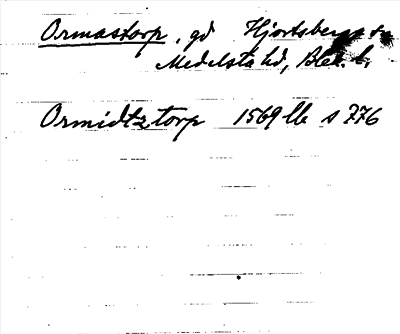 Ormastorp, gd Hjortsberga sn
Medelsta hd, Blek. l.
Ormidtztorp 1569 llb s 776